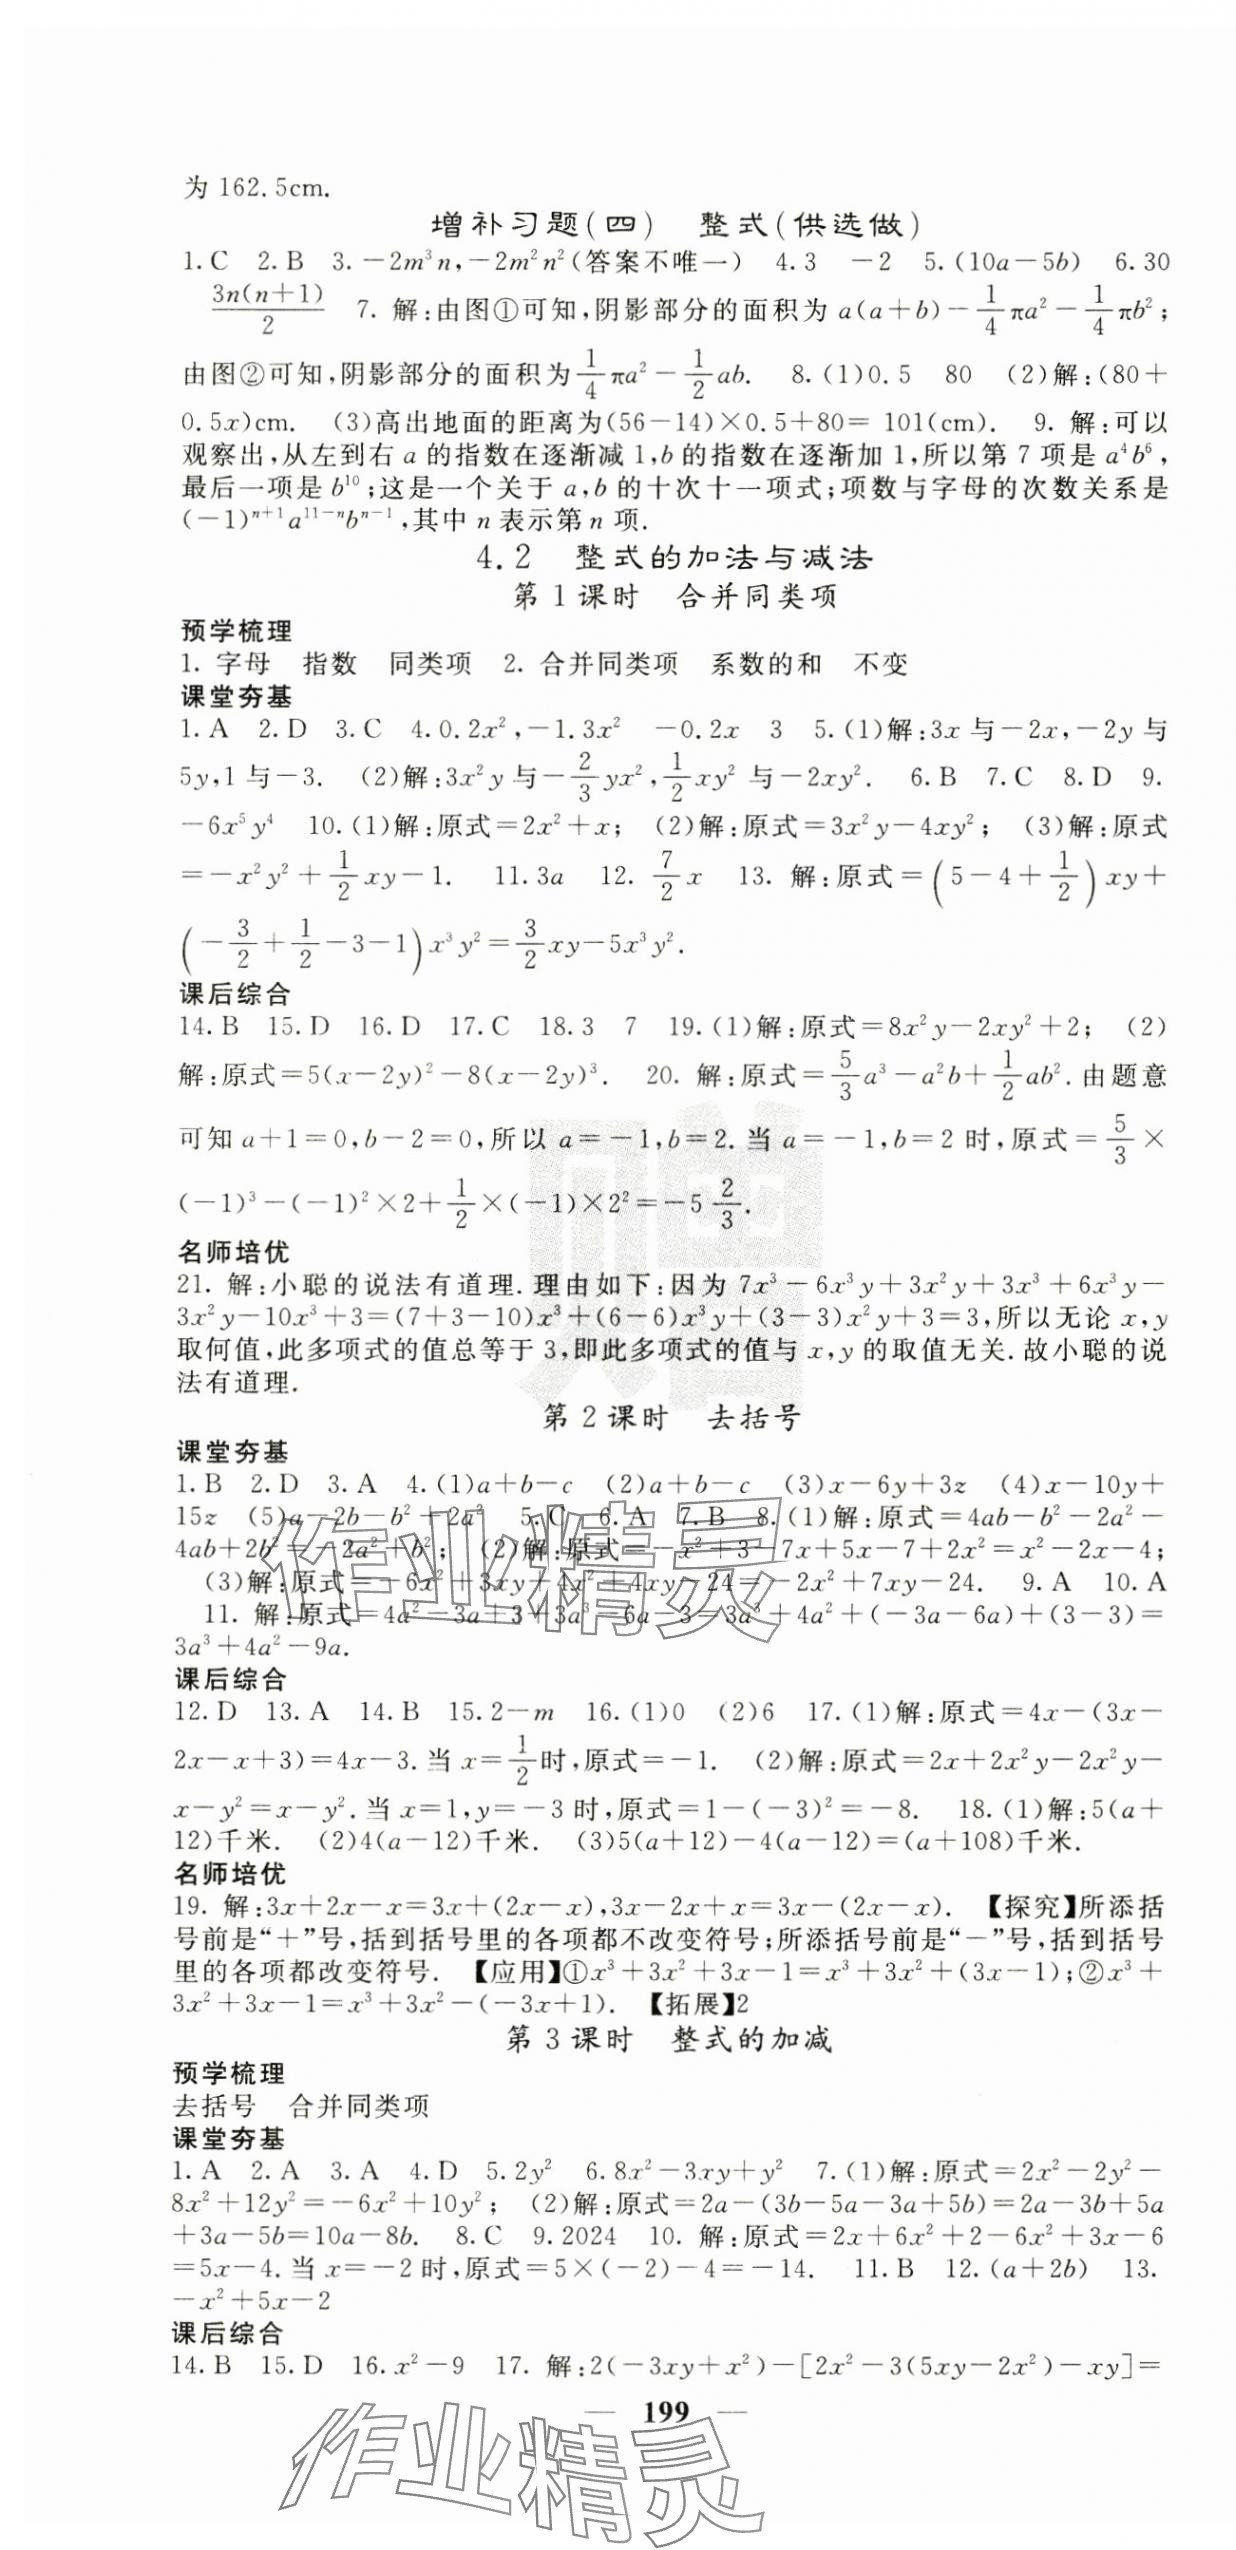 为 162.5cm.
增补习题(四) 整式(供选做)
1.C 2.B 3.－2m³n,－2m²n²(答案不唯一) 4.3 －2 5.(10a－5b) 6.30
3n(n＋1)/2 7. 解:由图①可知,阴影部分的面积为 a(a＋b)－1/4πa²－1/4πb²;
由图②可知,阴影部分的面积为1/4πa²－1/2ab. 8.(1)0.5 80 (2)解:(80＋
0.5x)cm. (3)高出地面的距离为(56－14)×0.5＋80＝101(cm). 9. 解:可以
观察出,从左到右 a 的指数在逐渐减 1,b 的指数在逐渐加 1,所以第 7 项是 a⁴b⁶,
最后一项是 b¹⁰;这是一个关于 a,b 的十次十一项式;项数与字母的次数关系是
(－1)ⁿ⁺¹a¹¹⁻ⁿbⁿ⁻¹,其中 n 表示第 n 项.
4.2 整式的加法与减法
第 1 课时 合并同类项
预学梳理
1. 字母 指数 同类项 2. 合并同类项 系数的和 不变
课堂夯基
1.A 2.D 3.C 4.0.2x²,－1.3x² －0.2x 3 5.(1)解:3x 与－2x,－2y 与
5y,1 与－3. (2)解:3x²y 与－2/3yx²,1/2xy² 与－2xy². 6.B 7.C 8.D 9.
－6x⁵y⁴ 10.(1)解:原式＝2x²＋x; (2)解:原式＝3x²y－4xy²; (3)解:原式
＝－x²y²＋1/2xy－1. 11.3a 12. 7/2x 13. 解:原式＝(5－4＋1/2)xy＋
(－3/2＋1/2－3－1)x³y²＝3/2xy－5x³y².
课后综合
14.B 15.D 16.D 17.C 18.3 7 19.(1)解:原式＝8x²y－2xy²＋2; (2)
解:原式＝5(x－2y)²－8(x－2y)³. 20. 解:原式＝5/3a³－a²b＋1/2ab².由题意
可知 a＋1＝0,b－2＝0,所以 a＝－1,b＝2.当 a＝－1,b＝2 时,原式＝5/3×
(－1)³－(－1)²×2＋1/2×(－1)×2²＝－5 2/3.
名师培优
21. 解:小聪的说法有道理.理由如下:因为 7x³－6x³y＋3x²y＋3x³＋6x³y－
3x²y－10x³＋3＝(7＋3－10)x³＋(6－6)x³y＋(3－3)x²y＋3＝3,所以无论 x,y
取何值,此多项式的值总等于 3,即此多项式的值与 x,y 的取值无关.故小聪的说
法有道理.
第 2 课时 去括号
课堂夯基
1.B 2.D 3.A 4.(1)a＋b－c (2)a＋b－c (3)x－6y＋3z (4)x－10y＋
15z (5)a－2b－b²＋2a² 5.C 6.A 7.B 8.(1)解:原式＝4ab－b²－2a²－
4ab＋2b²＝－2a²＋b²; (2)解:原式＝－x²＋3－7x＋5x－7＋2x²＝x²－2x－4;
(3)解:原式＝－6x²＋3xy＋4x²＋4xy－24＝－2x²＋7xy－24. 9.A 10.A
11. 解:原式＝4a²－3a＋3＋3a³－6a－3＝3a³＋4a²＋(－3a－6a)＋(3－3)＝
3a³＋4a²－9a.
课后综合
12.D 13.A 14.B 15.2－m 16.(1)0 (2)6 17.(1)解:原式＝4x－(3x－
2x－x＋3)＝4x－3.当 x＝1/2时,原式＝－1. (2)解:原式＝2x＋2x²y－2x²y－
x－y²＝x－y².当 x＝1,y＝－3 时,原式＝1－(－3)²＝－8. 18.(1)解:5(a＋
12)千米. (2)4(a－12)千米. (3)5(a＋12)－4(a－12)＝(a＋108)千米.
名师培优
19. 解:3x＋2x－x＝3x＋(2x－x),3x－2x＋x＝3x－(2x－x). 【探究】所添括
号前是“＋”号,括到括号里的各项都不改变符号;所添括号前是“－”号,括到括号
里的各项都改变符号. 【应用】①x³＋3x²＋3x－1＝x³＋3x²＋(3x－1);②x³＋
3x²＋3x－1＝x³＋3x²－(－3x＋1). 【拓展】2
第 3 课时 整式的加减
预学梳理
去括号 合并同类项
课堂夯基
1.A 2.A 3.A 4.D 5.2y² 6.8x²－3xy＋y² 7.(1)解:原式＝2x²－2y²－
8x²＋12y²＝－6x²＋10y²; (2)解:原式＝2a－(3b－5a－3a＋5b)＝2a－3b＋5a
＋3a－5b＝10a－8b. 8.C 9.2024 10. 解:原式＝2x＋6x²＋2－6x²＋3x－6
＝5x－4.当 x＝－2 时,原式＝5×(－2)－4＝－14. 11.B 12.(a＋2b) 13.
－x²＋5x－2
课后综合
14.B 15.D 16.x²－9 17. 解:2(－3xy＋x²)－[2x²－3(5xy－2x²)－xy]＝
— 199 —
作业精灵
作业精灵
赠